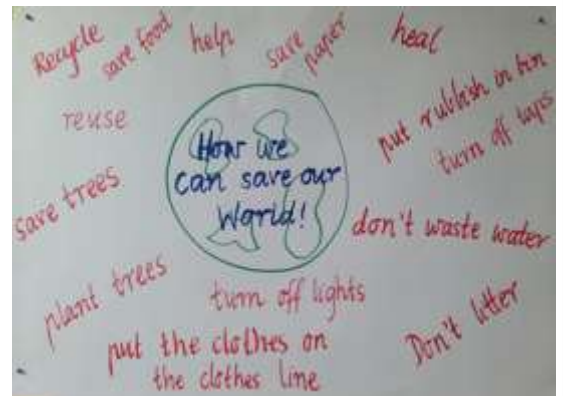 Recycle
save food
help
save
paper
heal
reuse
put rubbish in bin
turn off taps
How we
can save our
World!
save trees
don't waste water
plant trees
turn off lights
Don't litter
put the clothes on
the clothes line